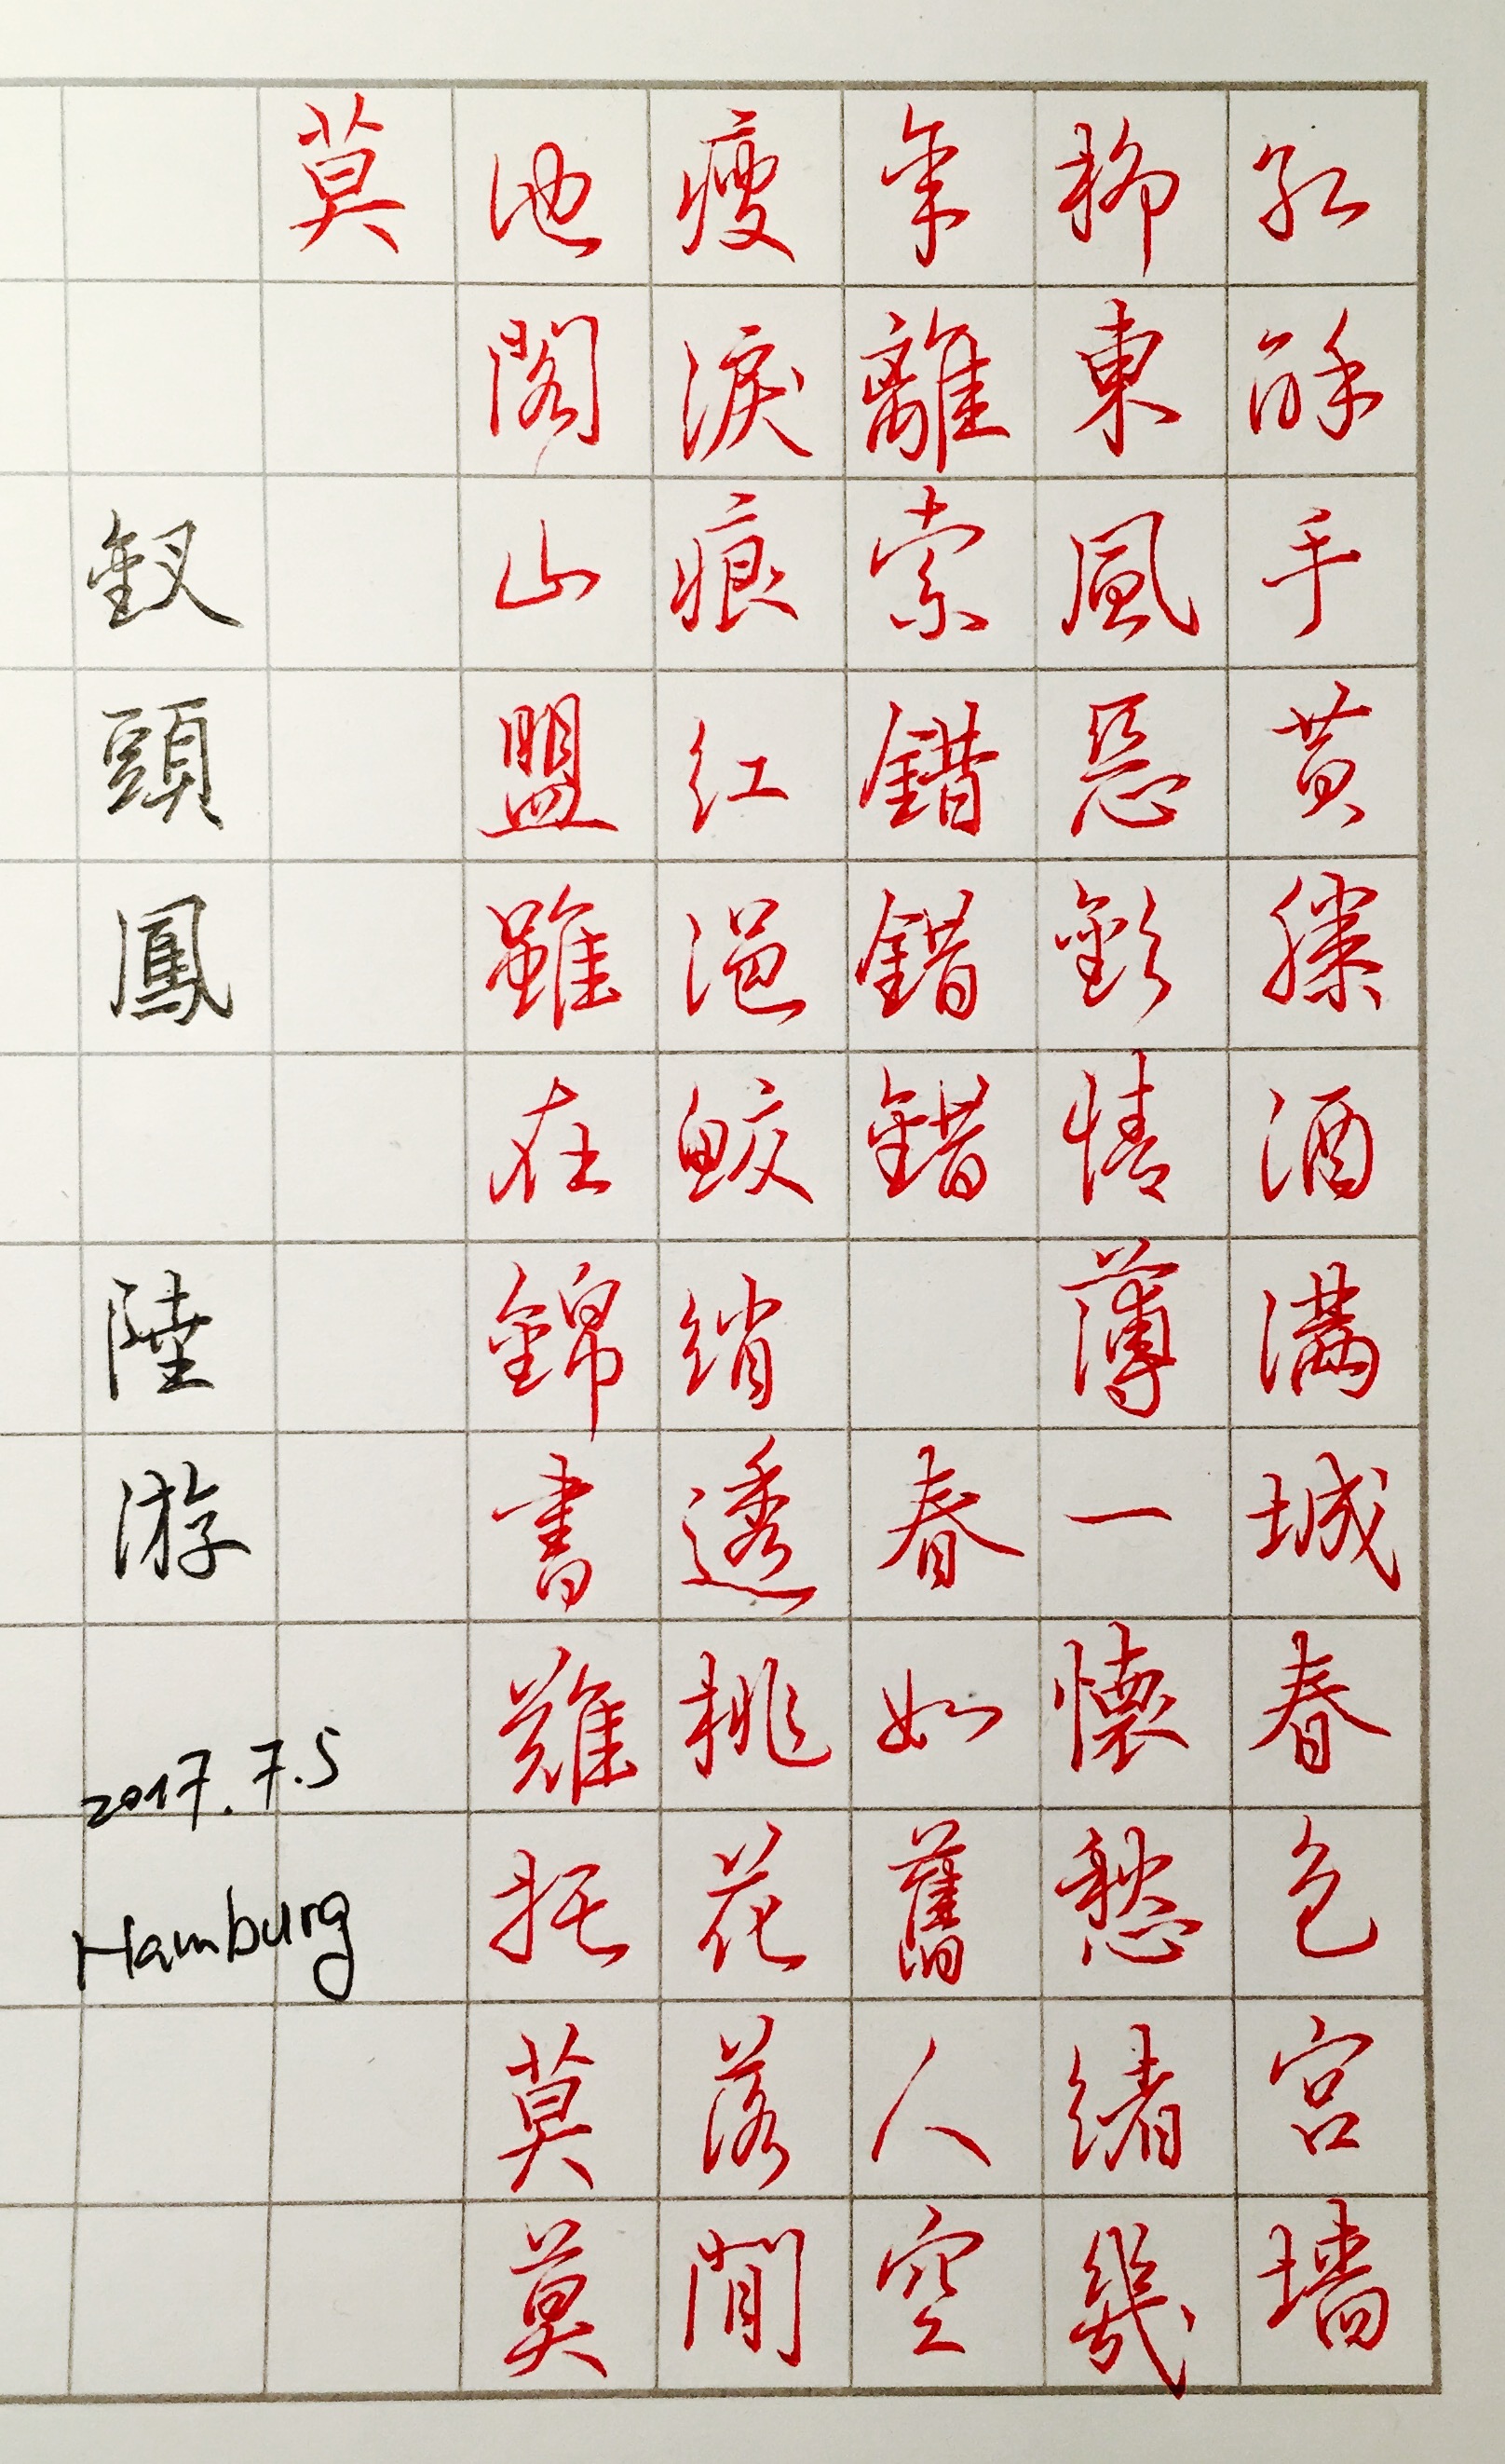 紅酥手黄滕酒滿城春色宮墙
柳東風惡歡情薄一懷愁緒幾
年離索錯錯錯 春如舊人空
瘦淚痕紅浥鮫綃透桃花落閒
池閣山盟雖在錦書難托莫莫
莫
釵頭鳳 陸游
2017.7.5
Hamburg